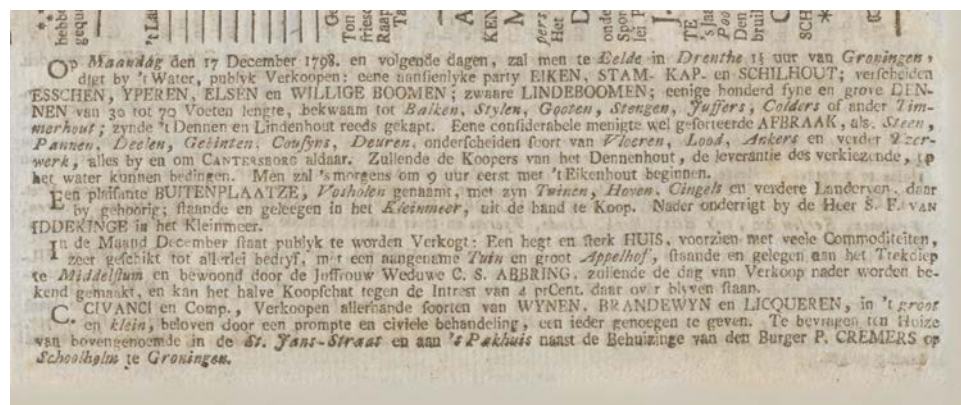 Op Maandag den 17 December 1798. en volgende dagen, zal men te Eelde in Drenthe 1½ uur van Groningen,
digt by 't Water, publyk Verkoopen: eene aansienlyke party EIKEN, STAM- KAP- en SCHILHOUT; verscheiden
ESSCHEN, YPEREN, ELSEN en WILLIGE BOOMEN; zwaare LINDEBOOMEN; eenige honderd fyne en grove DEN-
NEN van 30 tot 70 Voeten lengte, bekwaam tot Balken, Stylen, Gooten, Stengen, Juffers, Colders of ander Tim-
merhout; zynde 't Dennen en Lindenhout reeds gekapt. Eene considerabele menigte wel gesorteerde AFBRAAK, als. Steen,
Pannen, Deelen, Gebinten, Cousyns, Deuren, onderscheiden soort van Vloeren, Lood, Ankers en verder Yzer-
werk, alles by en om CANTERSBORG aldaar. Zullende de Koopers van het Dennenhout, de leverantie des verkiezende, op
het water kunnen bedingen. Men zal 's morgens om 9 uur eerst met 't Eikenhout beginnen.
Een plaisante BUITENPLAATZE, Vosholen genaamt, met zyn Tuinen, Hoven, Cingels en verdere Landeryen, daar
by gehoorig; staande en geleegen in het Kleinmeer, uit de hand te Koop. Nader onderrigt by de Heer S. F. VAN
IDDEKINGE in het Kleinmeer.
In de Maand December staat publyk te worden Verkogt: Een hegt en sterk HUIS, voorzien met veele Commoditeiten,
zeer geschikt tot allerlei bedryf, met een aangename Tuin en groot Appelhof, staande en gelegen aan het Trekdiep
te Middelstum en bewoond door de Juffrouw Weduwe C. S. ABBRING, zullende de dag van Verkoop nader worden be-
kend gemaakt, en kan het halve Koopschat tegen de Intrest van 4 prCent. daar over blyven staan.
C. CIVANCI en Comp., Verkoopen allerhande soorten van WYNEN, BRANDEWYN en LICQUEREN, in 't groot
en klein, beloven door een prompte en civiele behandeling, een ieder genoegen te geven. Te bevragen ten Huize
van bovengenoemde in de St. Jans-Straat en aan 's Pakhuis naast de Behuizinge van den Burger P. CREMERS op
Schoolholm te Groningen.